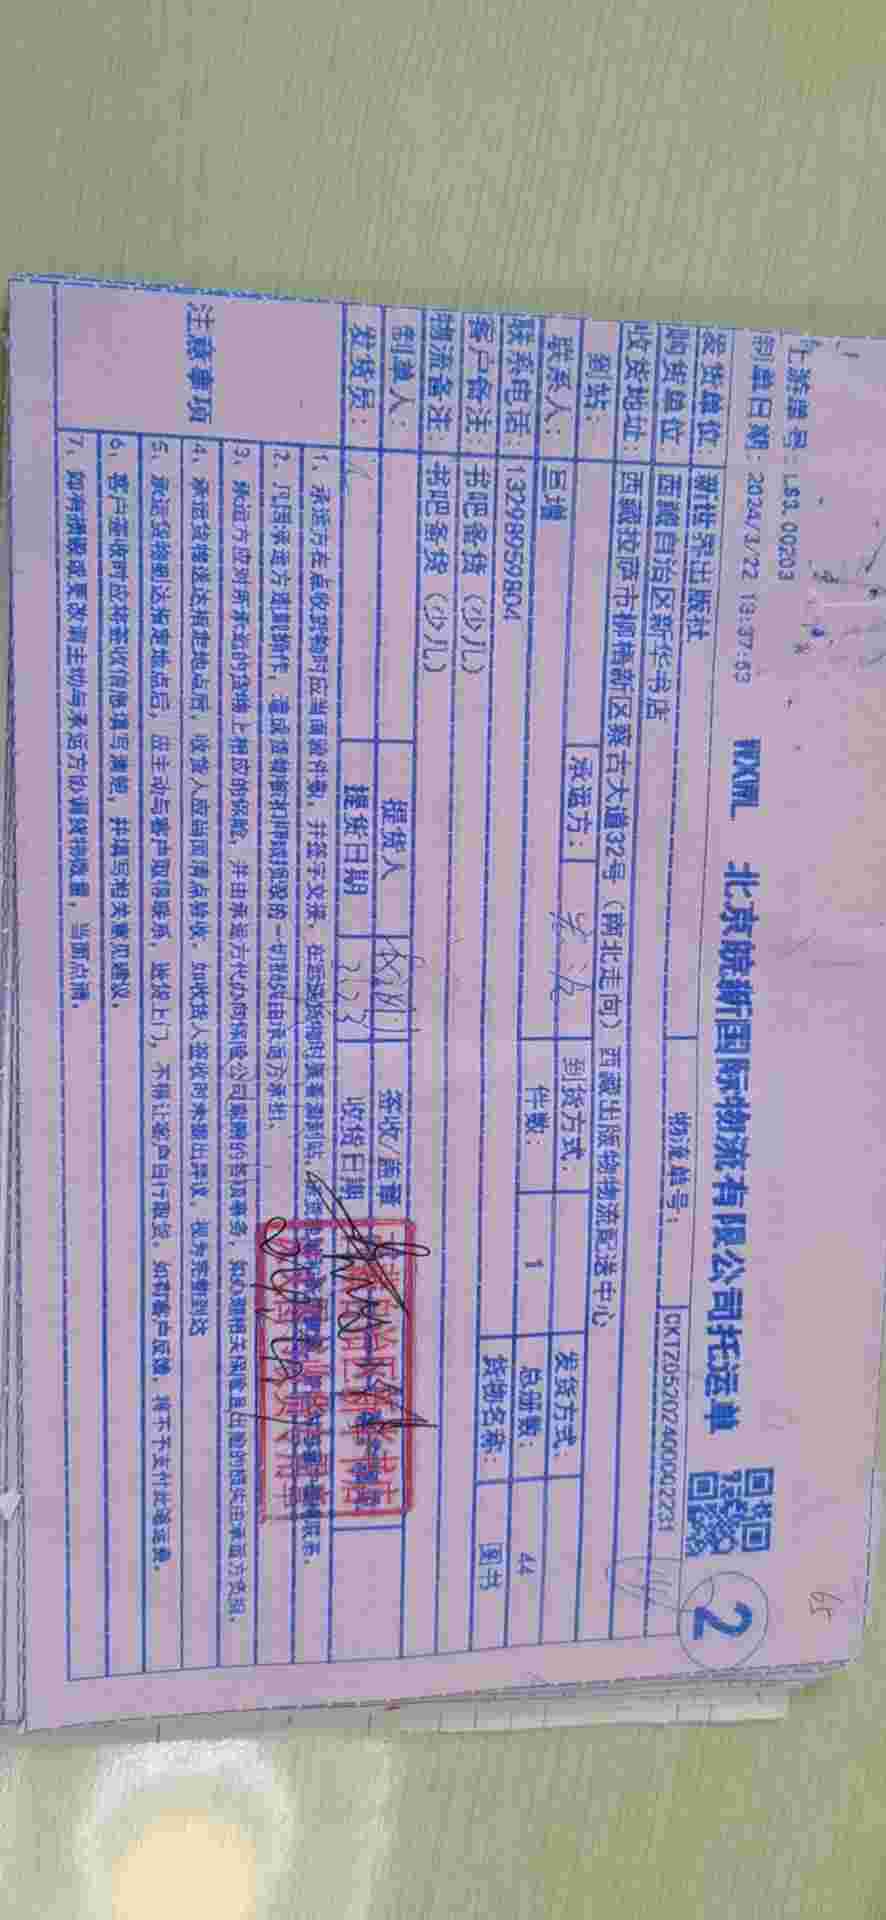 上游单号：LS3_00203
制单日期：2024/3/22 13:37:53 WXWL 北京皖新国际物流有限公司托运单 2 65
发货单位：新世界出版社 物流单号： CKTZ0520240002231
购货单位：西藏自治区新华书店
收货地址：西藏拉萨市柳梧新区察古大道32号（南北走向）西藏出版物物流配送中心
到站： 承运方： 到货方式： 发货方式：
联系人：旦增 件数： 1 总册数： 44
联系电话：13298959804 货物名称： 图书
客户备注：书吧备货（少儿）
物流备注：书吧备货（少儿）
制单人： 提货人 签收/盖章
发货员： 提货日期 3.23 收货日期
西藏自治区新华书店
注意事项
1、承运方在点收货物时应当面验件数，并签字交接，在
2、凡因承运方违章操作，造成货物被扣押或损毁的一切损失由承运方承担。
3、承运方应对所承运的货物上相应的保险，并由承运方代办向保险公司索赔的各项事务，
4、承运货物送达指定地点后，收货人应当面清点验收，如收货人签收时未提出异议，视为完整到达
5、承运货物到达指定地点后，应主动与客户取得联系，送货上门，不得让客户自行取货。如有客户反馈，将不予支付此笔运费。
6、客户签收时应将签收信息填写清楚，并填写相关意见建议。
7、如有损毁或更改请主动与承运方协调货物数量，当面点清。